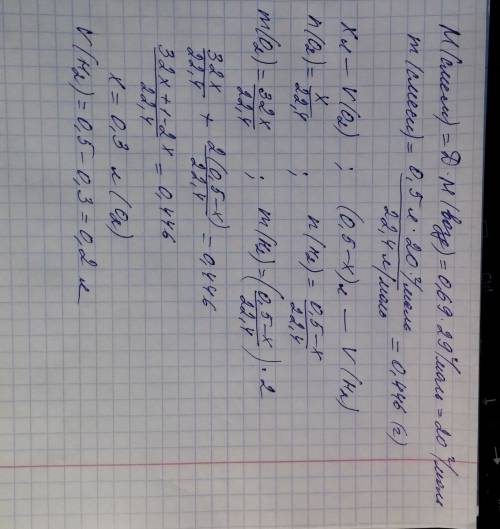 M(смеси) = D·M(возд) = 0,69·29 г/моль = 20 г/моль
m(смеси) = 0,5 л·20 г/моль / 22,4 л/моль = 0,446 (г)
X л – V(O₂) ; (0,5-X) л – V(H₂)
n(O₂) = X/22,4 ; n(H₂) = 0,5-X/22,4
m(O₂) = 32X/22,4 ; m(H₂) = (0,5-X/22,4)·2
32X/22,4 + 2(0,5-X)/22,4 = 0,446
32X+1-2X/22,4 = 0,446
X = 0,3 л (O₂)
V(H₂) = 0,5-0,3 = 0,2 л